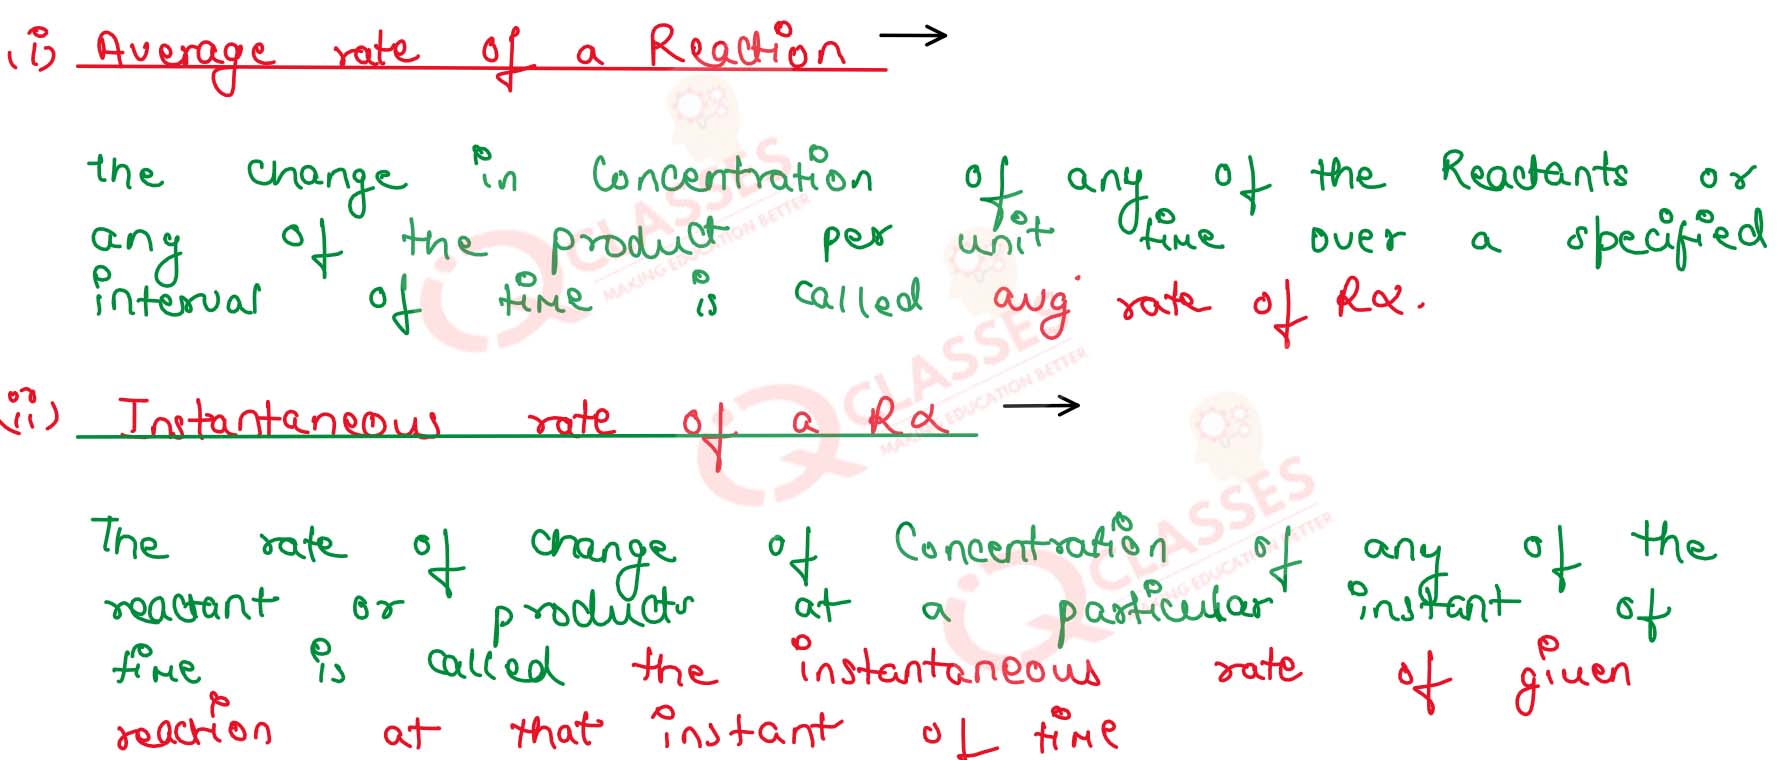 (i) Average rate of a Reaction →
the change in Concentration of any of the Reactants or
any of the product per unit time over a specified
interval of time is called avg rate of Rx.
(ii) Instantaneous rate of a Rx →
The rate of change of Concentration of any of the
reactant or products at a particular instant of
time is called the instantaneous rate of given
reaction at that instant of time
iQ CLASSES
MAKING EDUCATION BETTER
iQ CLASSES
MAKING EDUCATION BETTER
iQ CLASSES
MAKING EDUCATION BETTER